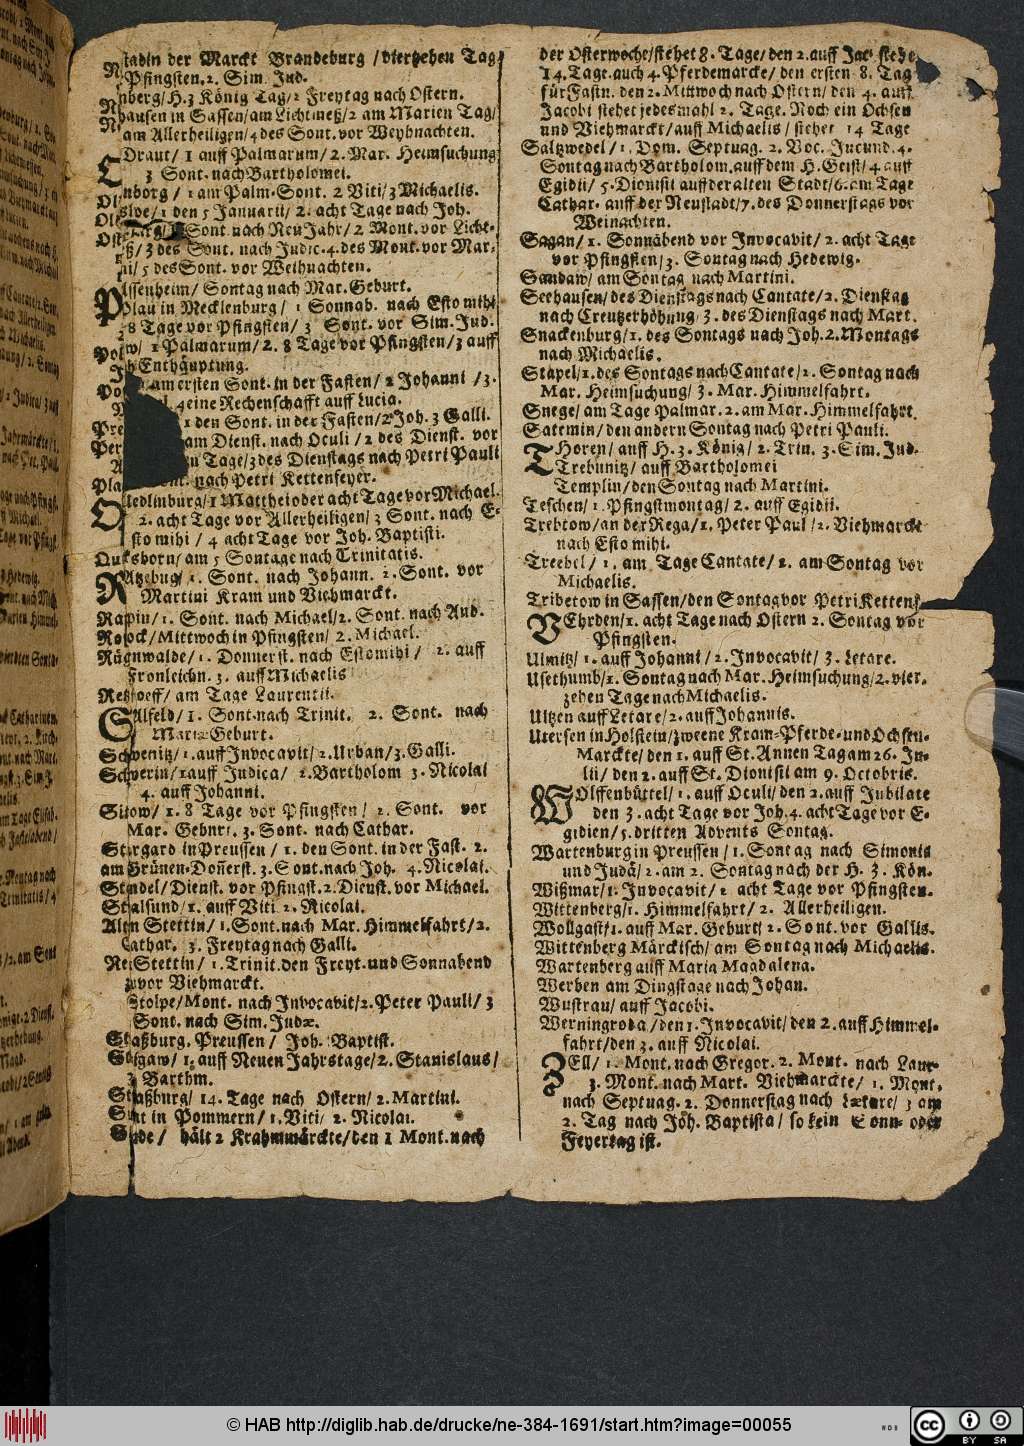 stadin der Marckt Brandeburg / vierzehen Tag
Pfingsten. 2. Sim. Jud.
nberg/ H. 3 König Tag/ 2 Freytag nach Ostern.
hausen in Sassen/ am Lichtmeß/ 2 am Marien Tag/
am Allerheiligen/ 4 des Sont. vor Weyhnachten.
Draut/ 1 auff Palmarum/ 2. Mar. Heimsuchung
3 Sont. nach Bartholomei.
nborg / 1 am Palm-Sont. 2 Viti/ 3 Michaelis.
sloe/ 1 den 5 Januarii/ 2. acht Tage nach Joh.
Sont. nach Neu Jahr/ 2 Mont. vor Licht-
ß/ 3 des Sont. nach Judic. 4. des Mont. vor Mar-
ni/ 5 des Sont. vor Weihnachten.
Plssenheim/ Sontag nach Mar. Geburt.
Plau in Mecklenburg / 1 Sonnab. nach Esto mihi
8 Tage vor Pfingsten/ 3 Sont. vor Sim. Jud.
w/ 1 Palmarum/ 2. 8 Tage vor Pfingsten/ 3 auff
Enthäuptung.
am ersten Sont. in der Fasten/ 2 Johanni / 3.
4 eine Rechenschafft auff Lucia.
1 den Sont. in der Fasten/ 2 Joh. 3 Galli.
am Dienst. nach Oculi / 2 des Dienst. vor
n Tage/ 3 des Dienstags nach Petri Pauli
nach Petri Kettenfeyer.
Qledlinburg/ 1 Matthei oder acht Tage vor Michael.
2. acht Tage vor Allerheiligen/ 3 Sont. nach E-
sto mihi / 4 acht Tage vor Joh. Baptisti.
Quksborn/ am 5 Sontage nach Trinitatis.
RAtzebug/ 1. Sont. nach Johann. 2. Sont. vor
Martini Kram und Viehmarckt.
Rapin/ 1. Sont. nach Michael/ 2. Sont. nach Aud.
Rosock/ Mittwoch in Pfingsten/ 2. Michael.
Rügnwalde/ 1. Donnerst. nach Estomihi / 2. auff
Fronleichn. 3. auff Michaelis
Retzoeff/ am Tage Laurentii.
SAlfeld/ 1. Sont. nach Trinit. 2. Sont. nach
Maria Geburt.
Schwenitz/ 1. auff Invocavit/ 2. Urban/ 3. Galli.
Schwerin/ 1 auff Judica/ 2. Bartholom 3. Nicolai
4. auff Johanni.
Sitow/ 1. 8 Tage vor Pfingsten / 2. Sont. vor
Mar. Geburt. 3. Sont. nach Cathar.
Stargard in Preussen / 1. den Sont. in der Fast. 2.
am Grünen-Donerst. 3. Sont. nach Joh. 4. Nicolai.
Stendel/ Dienst. vor Pfingst. 2. Dienst. vor Michael.
Stralsund/ 1. auff Viti 2. Nicolai.
Alten Stettin/ 1. Sont. nach Mar. Himmelfahrt/ 2.
Cathar. 3. Freytag nach Galli.
Neu Stettin/ 1. Trinit. den Freyt. und Sonnabend
zuvor Viehmarckt.
Stolpe/ Mont. nach Invocavit/ 2. Peter Pauli/ 3
Sont. nach Sim. Judæ.
Straßburg. Preussen / Joh. Baptist.
Stargaw/ 1. auff Neuen Jahrstage/ 2. Stanislaus/
3 Barthm.
Straßburg/ 14. Tage nach Ostern/ 2. Martini.
in Pommern/ 1. Viti/ 2. Nicolai.
hält 2 Krahmmärckte/ den 1 Mont. nach
der Osterwoche/ stehet 8. Tage/ den 2. auff Jac. stehe
14. Tage. auch 4. Pferdemarckt/ den ersten 8. Tag
für Fastn. den 2. Mittwoch nach Ostern/ den 4. auff
Jacobi stehet jedesmahl 2. Tage. Noch ein Ochsen
und Viehmarckt/ auff Michaelis/ stehet 14 Tage
Saltzwedel/ 1. Dom. Septuag. 2. Voc. Jucund. 4.
Sontag nach Bartholom. auff dem H. Geist/ 4 auff
Egidii/ 5. Dionisii auff der alten Stadt/ 6. am Tage
Cathar. auff der Neustadt/ 7. des Donnerstags vor
Weinachten.
Sagan/ 1. Sonnabend vor Invocavit/ 2. acht Tage
vor Pfingsten/ 3. Sontag nach Hedewig.
Sandaw/ am Sontag nach Martini.
Seehausen/ des Dienstags nach Cantate/ 2. Dienstag
nach Creutzerhöhung/ 3. des Dienstags nach Mart.
Snackenburg/ 1. des Sontags nach Joh. 2. Montags
nach Michaelis.
Stapel/ 1. des Sontags nach Cantate/ 2. Sontag nach
Mar. Heimsuchung/ 3. Mar. Himmelfahrt.
Snege/ am Tage Palmar. 2. am Mar. Himmelfahrt.
Satrmin/ den andern Sontag nach Petri Pauli.
THoren/ auff H. 3. König/ 2. Trin. 3. Sim. Jud.
Trebunitz/ auff Bartholomei
Templin/ den Sontag nach Martini.
Teschen/ 1. Pfingstmontag/ 2. auff Egidii.
Trebtow/ an der Rega/ 1. Peter Paul / 2. Viehmarckt
nach Esto mihi.
Treebel/ 1. am Tage Cantate/ 2. am Sontag vor
Michaelis.
Tribetow in Sassen/ den Sontag vor Petri Kettenf.
VEhrden/ 1. acht Tage nach Ostern 2. Sontag vor
Pfingsten.
Ulmitz/ 1. auff Johanni/ 2. Invocavit/ 3. Letare.
Usethumb/ 1. Sontag nach Mar. Heimsuchung/ 2. vier-
zehen Tage nach Michaelis.
Ultzen auff Letare/ 2. auff Johannis.
Utersen in Holstein/ zweene Kram-Pferde- und Ochsen-
Marckte/ den 1. auff St. Annen Tag am 26. Ju-
lii/ den 2. auff St. Dionisii am 9. Octobris.
WOlffenbüttel/ 1. auff Oculi/ den 2. auff Jubilate
den 3. acht Tage vor Joh. 4. acht Tage vor E-
gidien/ 5. dritten Advents Sontag.
Wartenburg in Preussen / 1. Sontag nach Simonis
und Judä/ 2. am 2. Sontag nach der H. 3. Kön.
Wißmar/ 1. Invocavit/ 2 acht Tage vor Pfingsten.
Wittenberg/ 1. Himmelfahrt/ 2. Allerheiligen.
Wollgast/ 1. auff Mar. Geburt/ 2. Sont. vor Gallis.
Wittenberg Märckisch/ am Sontag nach Michaelis.
Wartenberg auff Maria Magdalena.
Werben am Dingstage nach Johan.
Wustrau/ auff Jacobi.
Werningroda/ den 1. Invocavit/ den 2. auff Himmel-
fahrt/ den 3. auff Nicolai.
ZEll/ 1. Mont. nach Gregor. 2. Mont. nach Laur-
3. Mont. nach Mart. Viehmarckte/ 1. Mont.
nach Septuag. 2. Donnerstag nach Lætare/ 3 am
2. Tag nach Joh. Baptista/ so kein Sonn- oder
Feyertag ist.
© HAB http://diglib.hab.de/drucke/ne-384-1691/start.htm?image=00055
cc BY SA